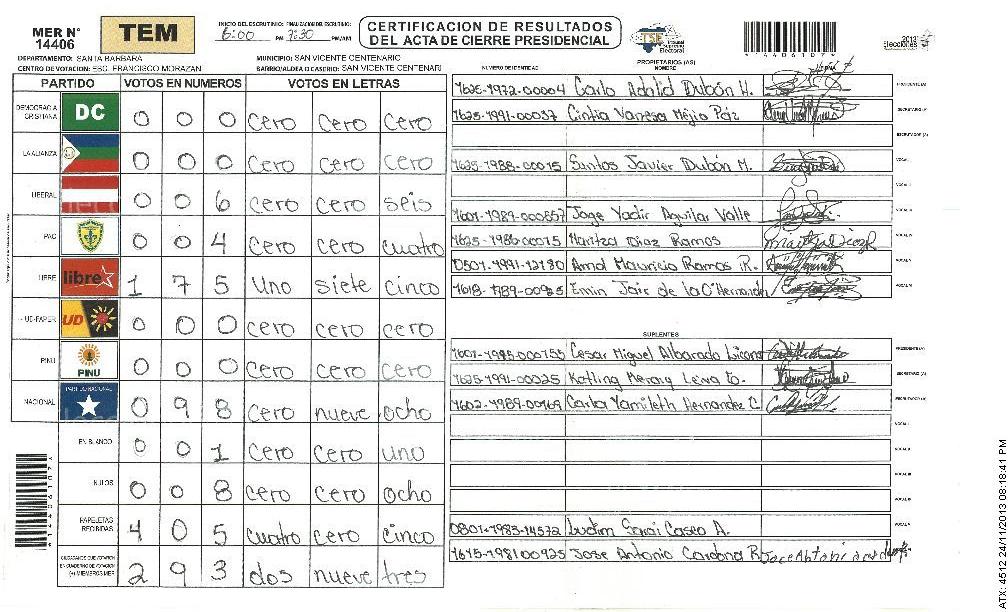 MER N° 14406
TEM
INICIO DEL ESCRUTINIO: FINALIZACION DEL ESCRUTINIO:
6:00 PM 7:30 PM/AM
CERTIFICACION DE RESULTADOS
DEL ACTA DE CIERRE PRESIDENCIAL
TSE Tribunal Supremo Electoral
14406107
2013 Elecciones
DEPARTAMENTO: SANTA BARBARA
MUNICIPIO: SAN VICENTE CENTENARIO
CENTRO DE VOTACION: ESC. FRANCISCO MORAZAN
BARRIO/ALDEA O CASERIO: SAN VICENTE CENTENARI
PARTIDO VOTOS EN NUMEROS VOTOS EN LETRAS
DEMOCRACIA CRISTIANA DC 0 0 0 cero cero cero
LA ALIANZA 0 0 0 cero cero cero
LIBERAL 0 0 6 cero cero seis
PAC 0 0 4 cero cero cuatro
LIBRE libre 1 7 5 uno siete cinco
UD-FAPER UD 0 0 0 cero cero cero
PINU PINU 0 0 0 cero cero cero
NACIONAL PARTIDO NACIONAL 0 9 8 cero nueve ocho
EN BLANCO 0 0 1 cero cero uno
NULOS 0 0 8 cero cero ocho
PAPELETAS RECIBIDAS 4 0 5 cuatro cero cinco
CIUDADANOS QUE VOTARON EN CUADERNO DE VOTACION (+) MIEMBROS MER 2 9 3 dos nueve tres
NUMERO DE IDENTIDAD
PROPIETARIOS (AS)
NOMBRE
1625-1972-00004 Carlo Adalid Dubón H. PRESIDENTE (A)
1625-1991-00037 Cintia Vanesa Mejia Paz SECRETARIO (A)
ESCRUTADOR (A)
1625-1988-00015 Santos Javier Dubón M. VOCAL I
VOCAL II
1601-1989-000857 Joge Yadir Aguilar Valle VOCAL III
1625-1986-00015 Maritza Diaz Ramos VOCAL IV
0501-1991-12190 Arnol Mauricio Ramos R. VOCAL V
1618-1989-00925 Emin Jair de la O Hernandez VOCAL VI
SUPLENTES
1601-1985-000755 Cesar Miguel Alborado PRESIDENTE (A)
1625-1991-00025 Katling Merary Leiva SECRETARIO (A)
1602-1989-00169 Carla Yamileth Hernandez C. ESCRUTADOR (A)
VOCAL I
VOCAL II
VOCAL III
VOCAL IV
0801-1983-14572 Ludim Sarai Caseo A. VOCAL V
1615-198100925 Jose Antonio Cardona R.
14406107
ATX: 4512 24/11/2013 08:18:41 PM